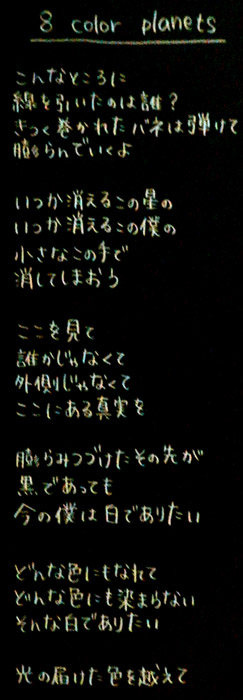 8 color planets
こんなところに
線を引いたのは誰？
きつく巻かれたバネは弾けて
膨らんでいくよ
いつか消えるこの星の
いつか消えるこの僕の
小さなこの手で
消してしまおう
ここを見て
誰かじゃなくて
外側じゃなくて
ここにある真実を
膨らみつづけたその先が
黒であっても
今の僕は白でありたい
どんな色にもなれて
どんな色にも染まらない
そんな白でありたい
光の届けた色を越えて